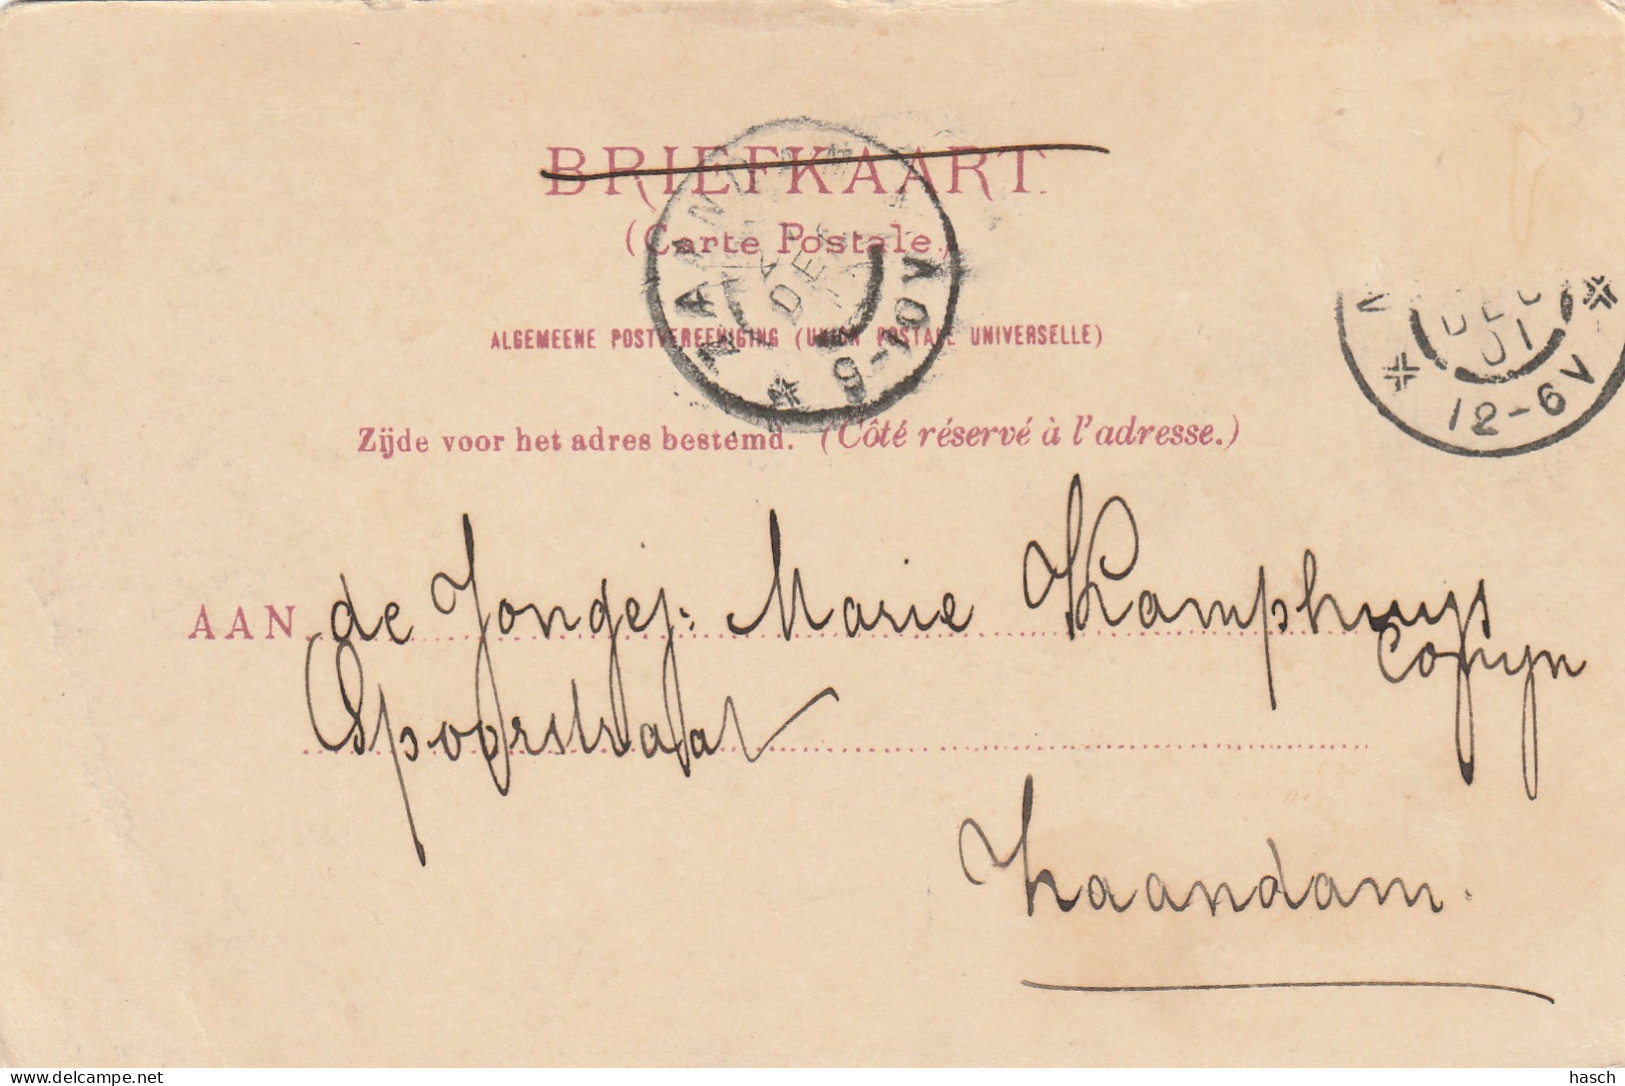 BRIEFKAART.
(Carte Postale.)
ALGEMEENE POSTVEREENIGING (UNION POSTALE UNIVERSELLE)
Zijde voor het adres bestemd. (Côté réservé à l'adresse.)
ZAANDAM
DEC
9-10V
DEC
01
12-6V
AAN de Jongej: Marie Kamphuys
Cofijn
Spoorstraat
Zaandam.
delcampe.net
hasch